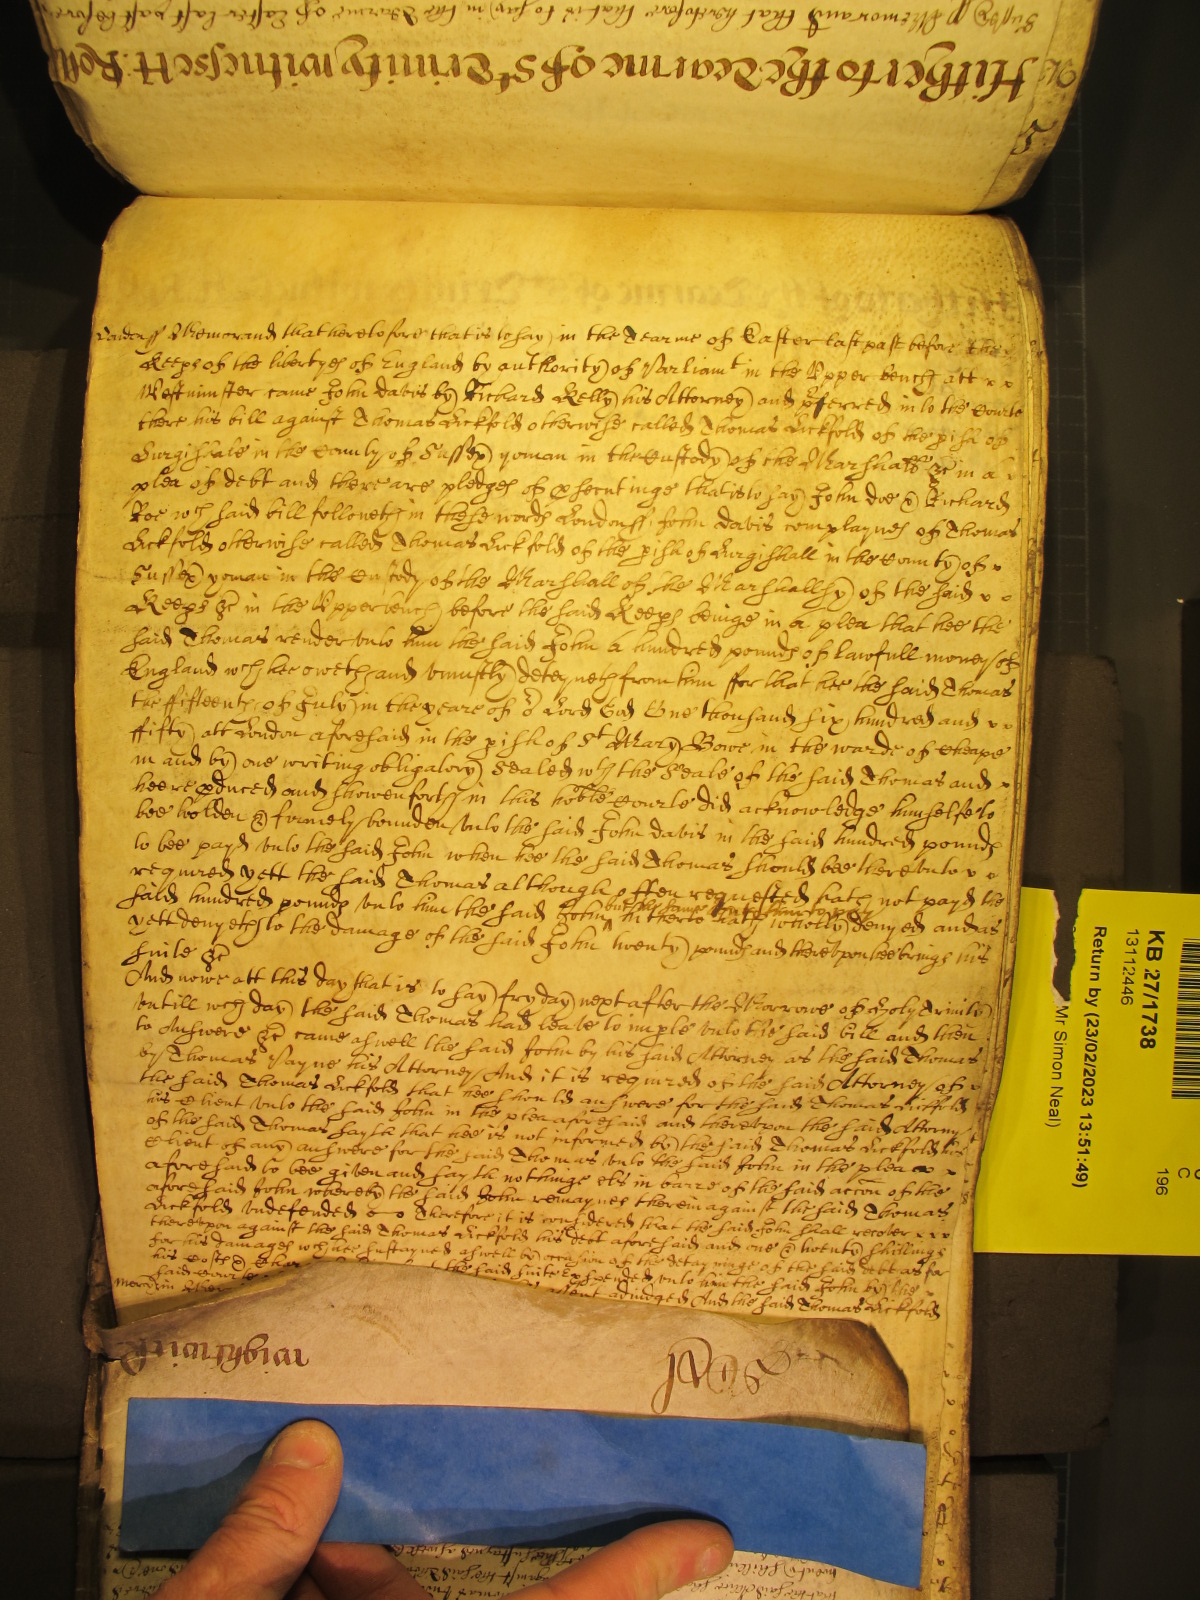 Hitherto the Tearme of St Trinity witnesseth Roll
Londonss Memorand that heretofore that is to say in the Tearme of Easter last past before the
Keeps of the libertyes of England by authority of Parliamt in the Upper bench att x x
Westminster came John Davis by Richard Kelly his Attorney and pferred into the Courte
there his bill against Thomas Lickfold otherwise called Thomas Lickfold of the pish of
Lurgishale in the County of Sussex yoman in the Custody of the Marshall &c in a
plea of debt and there are pledges of psecutinge that is to say John Doe & Richard
Roe wch said bill followeth in these words Londonss John Davis complaynes of Thomas
Lickfold otherwise called Thomas Lickfold of the pish of Lurgishall in the County of x
Sussex yoman in the Custody of the Marshall of the Marshallsy of the said x x
Keeps &c in the Upper bench before the said Keeps beinge in a plea that hee the
said Thomas render unto him the said John a hundred pounds of lawfull money of
England wch hee oweth and uniustly deteyneth from him ffor that hee the said Thomas
the ffifteenth of July in the yeare of or Lord God One thousand six hundred and x x
ffifty att London aforesaid in the pish of St Mary Bowe in the warde of Cheape
in and by one writing obligatory Sealed wth the Seale of the said Thomas and x
heere pduced and shewen forth in this noble Courte did acknowledge himselfe to
bee holden & firmely bounden unto the said John Davis in the said hundred pounds
to bee payd unto the said John when hee the said Thomas should bee thereunto x x
required yett the said Thomas although often requested hath not payd the
said hundred pounds unto him the said John but the same to him hitherto hath wholly denyed and as
yett denyeth to the damage of the said John twenty pounds and thereupon hee brings his
suite &c
And nowe att this day that is to say fryday next after the Morrowe of Holy Trinity
untill wch day the said Thomas had leave to imple unto the said bill and then
to Answere &c came aswell the said John by his said Attorney as the said Thomas
by Thomas Payne his Attorney And it is required of the said Attorney of x
the said Thomas Lickfold that hee should answere for the said Thomas Lickfold
his Client unto the said John in the plea aforesaid and thereupon the said Attorny
of the said Thomas sayth that hee is not informed by the said Thomas Lickfold his
Client of any answere for the said Thomas unto the said John in the plea x x
aforesaid to bee given and sayth nothinge els in barre of the said accon of the
aforesaid John whereby the said John remaynes therein against the said Thomas
Lickfold undefended Therefore it is considered that the said John shall recover x x x
thereupon against the said Thomas Lickfold his debt aforesaid and one & twenty shillings
for his damages wch hee sustayned aswell by occasion of the detayninge of the said debt as for
his Costs & the said suite Expended unto him the said John by the
said Courte assent adiudged And the said Thomas Lickfold
wightwick
KB 27/1738
13112446
Return by (23/02/2023 13:51:49)
Mr Simon Neal)
C
196